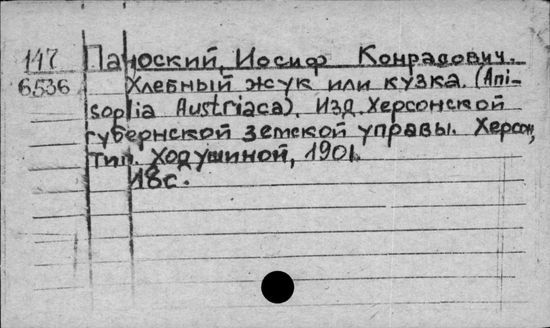 147 Паноский, Иосиф Конрадович.
6536 Хлебный жук или кузка. (Ani-
soplia Austriaca). Изд. Херсонской
губернской земской управы. Херсон,
тип. Ходушиной, 1901.
18с.